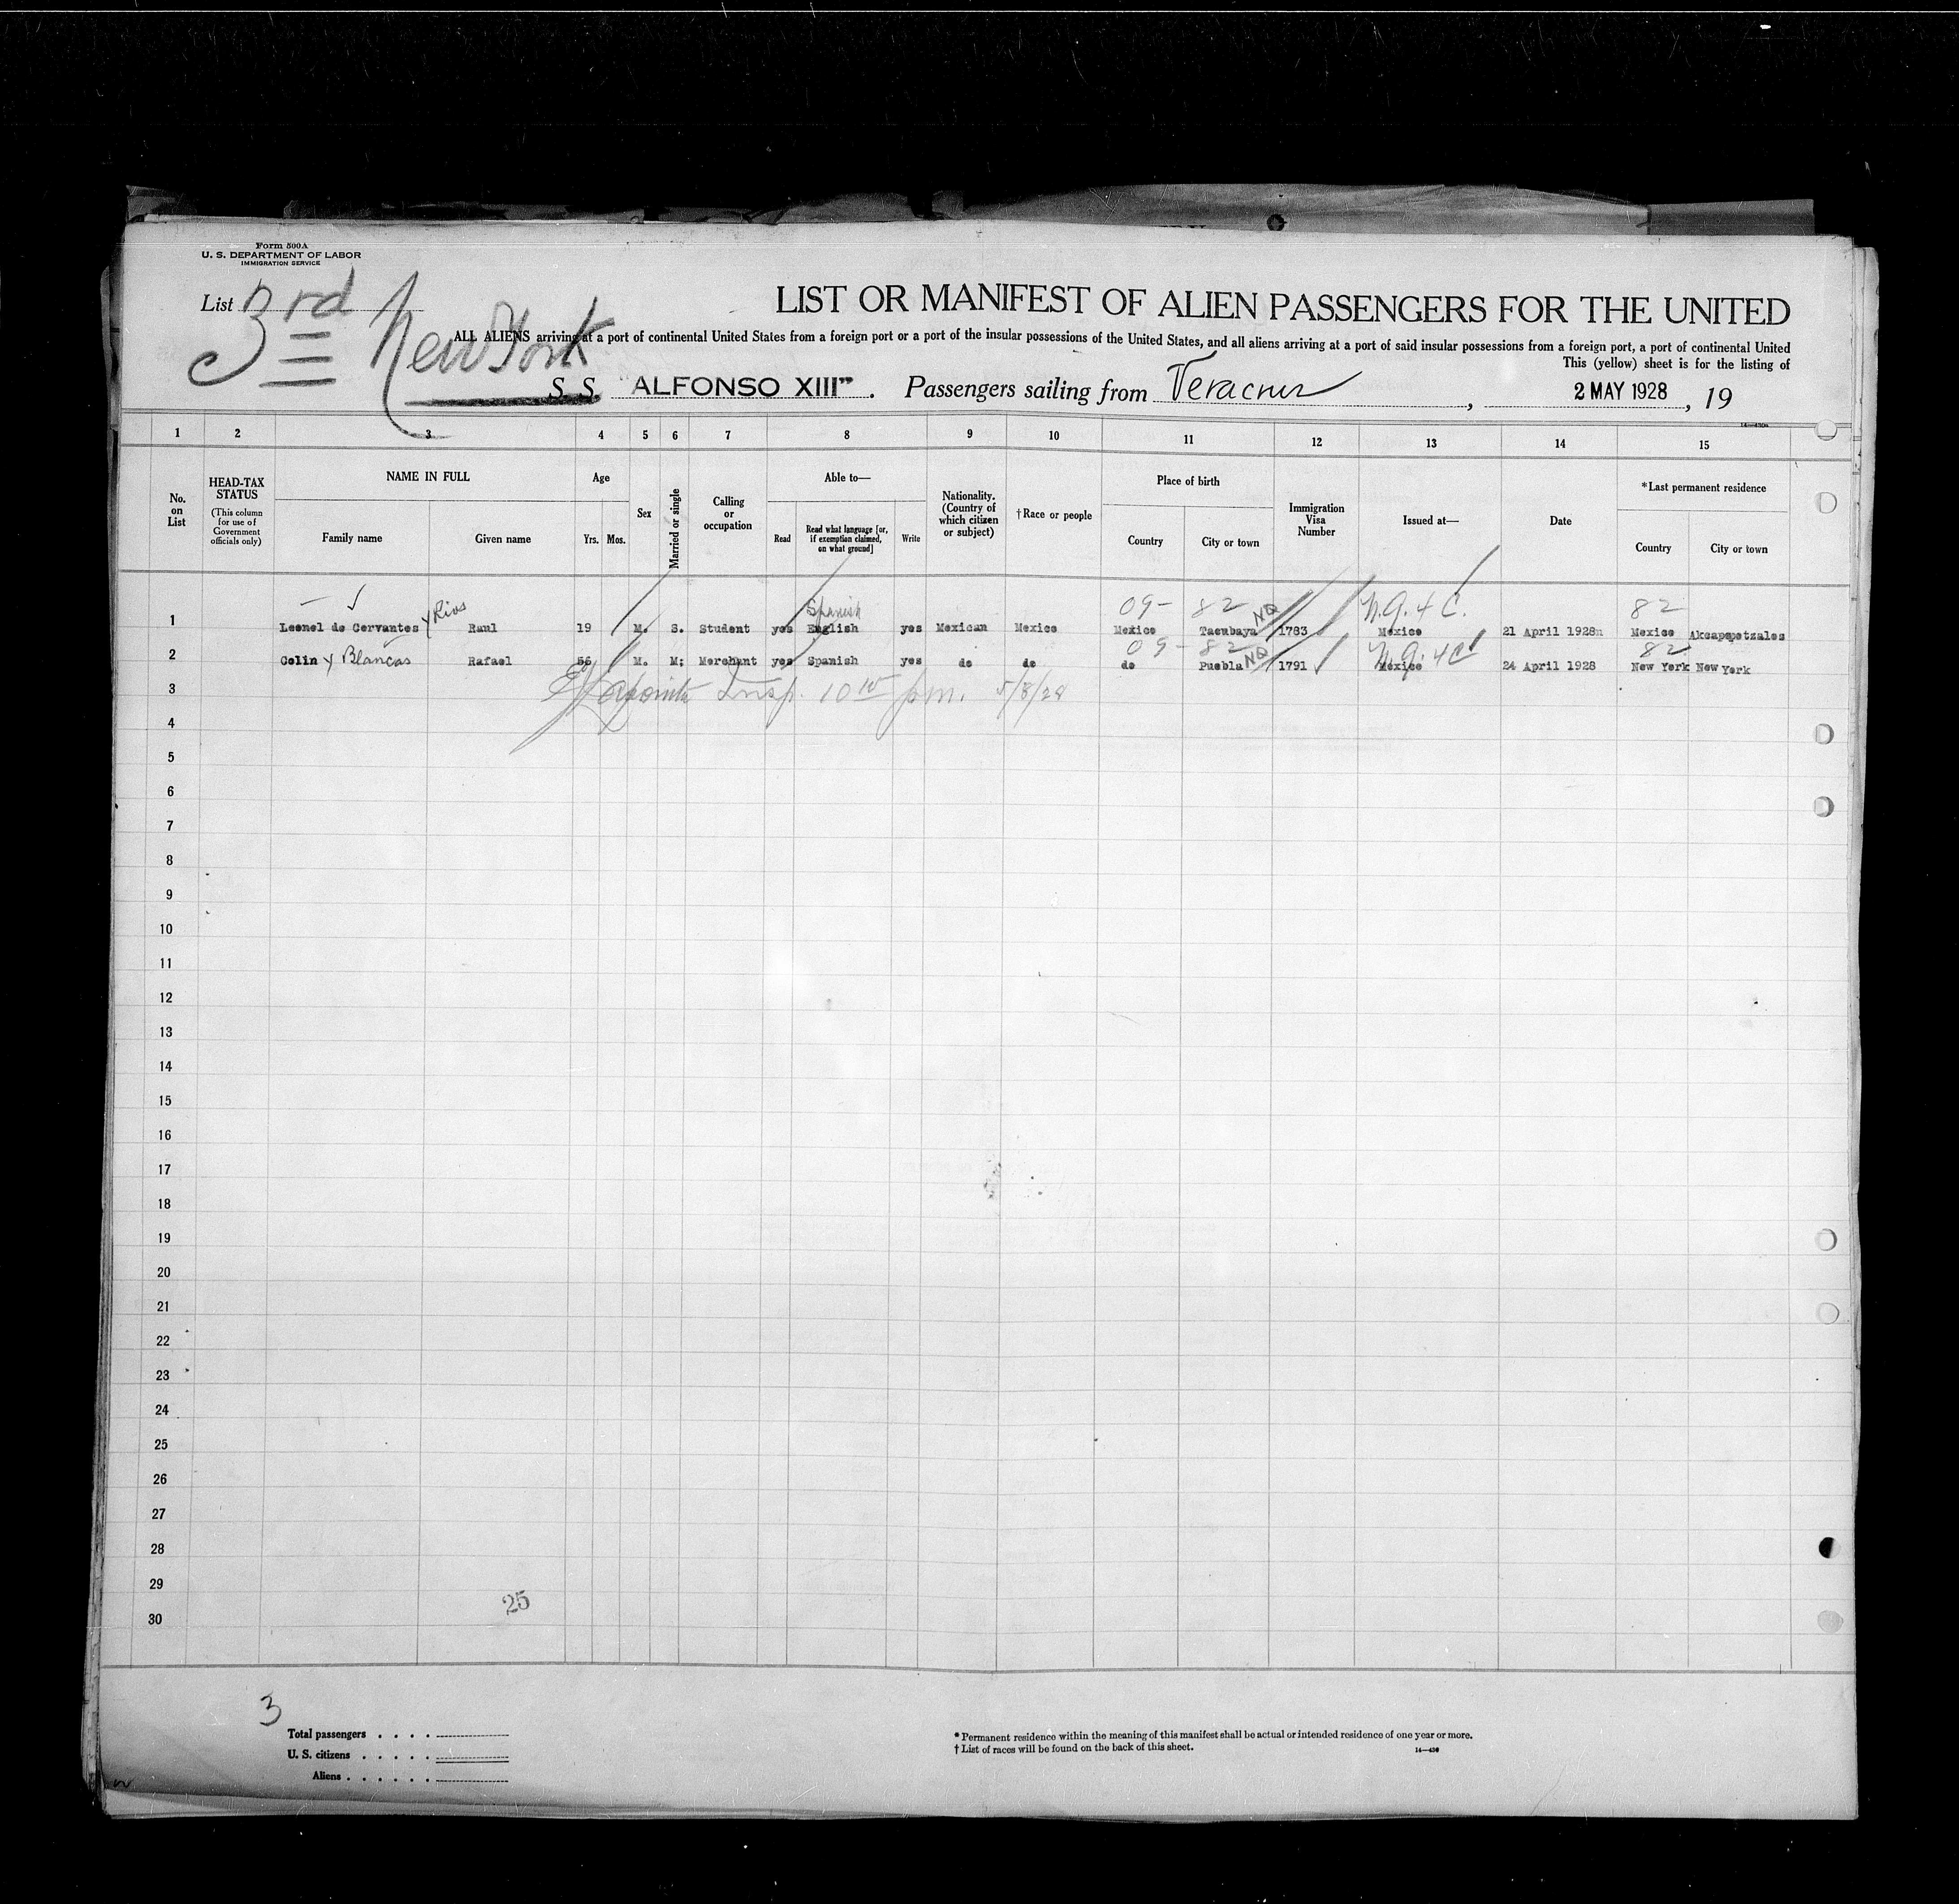 Form 500A
U. S. DEPARTMENT OF LABOR
IMMIGRATION SERVICE
List 3rd
New York
LIST OR MANIFEST OF ALIEN PASSENGERS FOR THE UNITED
ALL ALIENS arriving at a port of continental United States from a foreign port or a port of the insular possessions of the United States, and all aliens arriving at a port of said insular possessions from a foreign port, a port of continental United
This (yellow) sheet is for the listing of
S. S. "ALFONSO XIII". Passengers sailing from Veracruz, 2 MAY 1928, 19
1 2 3 4 5 6 7 8 9 10 11 12 13 14 15
No. on List
HEAD-TAX STATUS
(This column for use of Government officials only)
NAME IN FULL
Family name Given name
Age
Yrs. Mos.
Sex
Married or single
Calling or occupation
Able to—
Read
Read what language [or, if exemption claimed, on what ground]
Write
Nationality. (Country of which citizen or subject)
†Race or people
Place of birth
Country City or town
Immigration Visa Number
Issued at—
Date
*Last permanent residence
Country City or town
09- 82 NQ 82
Spanish
1 Leonel de Cervantes y Rios Raul 19 M. S. Student yes English yes Mexican Mexico Mexico Tacubaya 1783 Mexico 21 April 1928
Mexico
09- 82 NQ 82
2 Colin y Blancas Rafael 56 M. M: Merchant yes Spanish yes do do do Puebla 1791 Mexico 24 April 1928 New York New York
3 Insp. 10 pm. 5/8/28
4
5
6
7
8
9
10
11
12
13
14
15
16
17
18
19
20
21
22
23
24
25
26
27
28
29
30
25
3
Total passengers
U. S. citizens
Aliens
* Permanent residence within the meaning of this manifest shall be actual or intended residence of one year or more.
† List of races will be found on the back of this sheet.
14—430